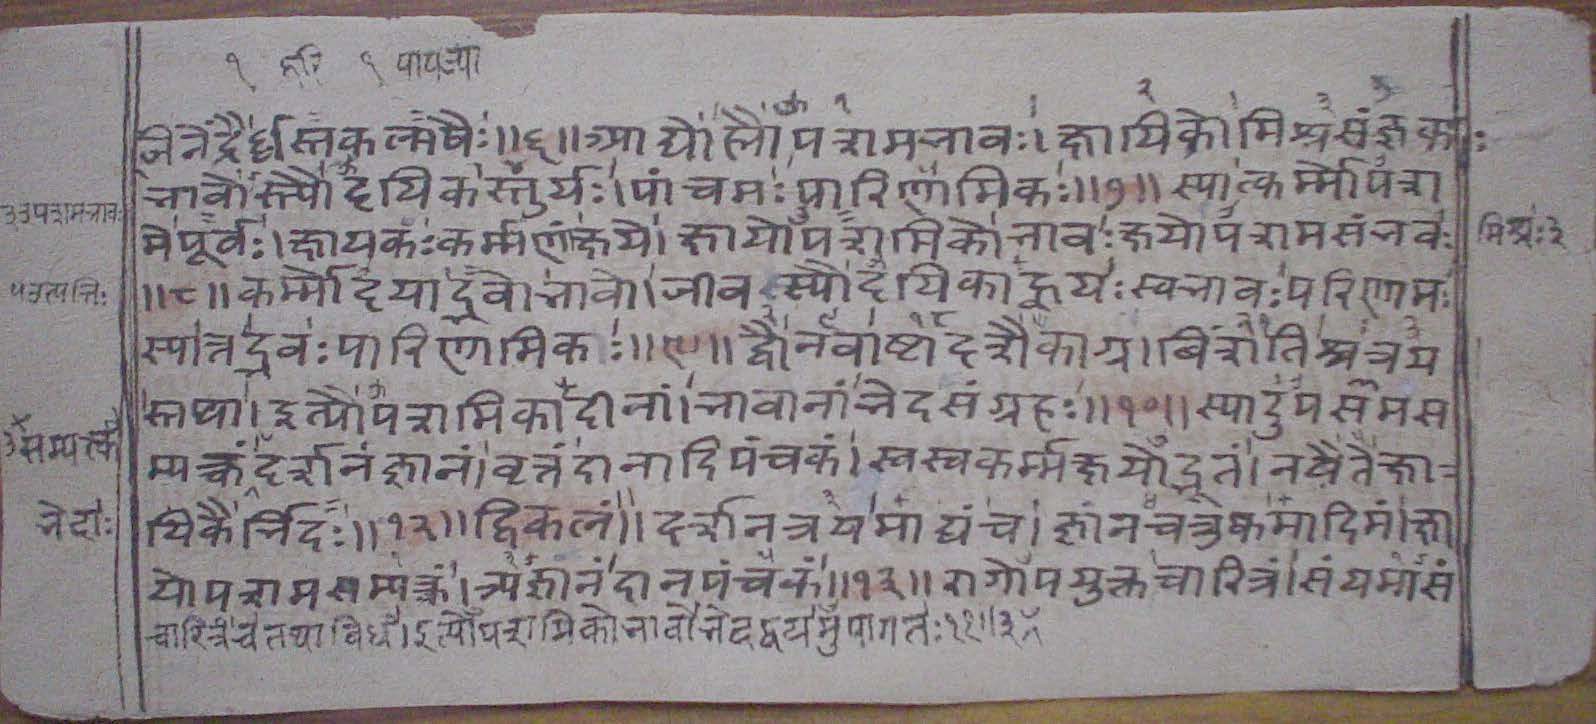 जिनेंद्रैर्ध्वस्तकल्मषैः॥६॥आद्यो ह्यौपशमभावः।क्षायिको मिश्रसंज्ञकः
भावोस्त्यौदयिकस्तुर्यः।पांचमः पारिणामिकः॥७॥स्यात्कर्म्मोपश
मे पूर्वः।क्षायकः कर्म्मणां क्षये।क्षायोपशमिको भावः क्षयोपशमसंभवः
॥८॥कर्म्मोदयाद्भवो भावो।जीवस्यौदयिको ह्ययः स्वभावः परिणामः
स्यात्तद्भवः पारिणामिकः॥९॥द्वौ नवाष्टादशैकाग्रविंशतिश्च त्रय
स्तथा।इत्यौपशमिकादीनां।भावानां भेदसंग्रहः॥१०॥स्यादुपसमस
म्यक्त्वं दर्शनं ज्ञानं।वृत्तं दानादिपंचकं।स्वस्वकर्म्मक्षयोद्भूतं।नवैते क्षा
यिके भिदः॥१२॥द्विकलं॥दर्शनत्रयमाद्यं च।ज्ञानचतुष्कमादिमं।क्षा
योपशमसम्यक्त्वं।त्र्यज्ञानं दानपंचकं॥१३॥रागोपयुक्तचारित्रं।संयमासं
चारित्रं च तथाविधं।इत्यौपशमिको भावो भेदद्वयमुपागतः११॥
उपशमभावः
मिश्रः३
सम्यत्क
भेदाः